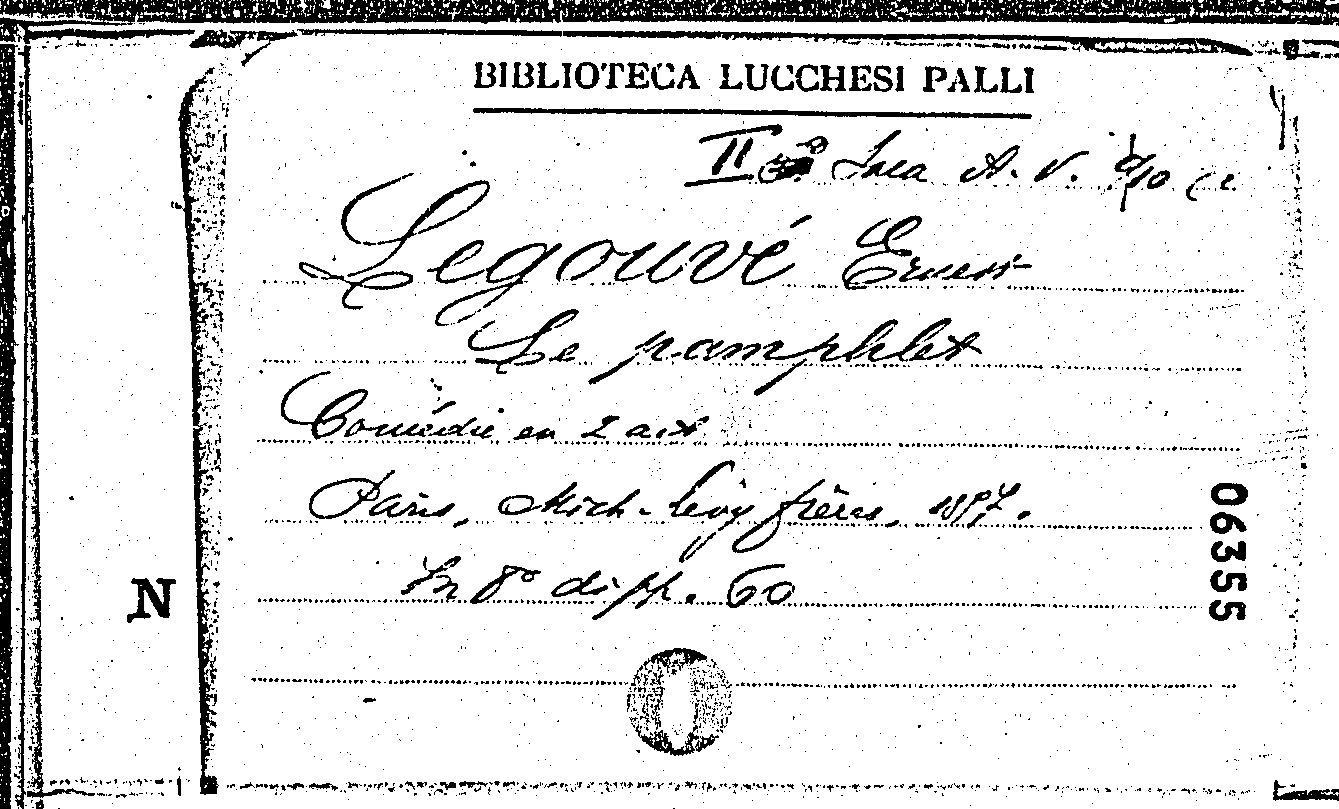 BIBLIOTECA LUCCHESI PALLI
II Sala A. V.
Legouvé Ernest
Le pamphlet
Comédie en 2 act
Paris, Mich. Lévy frères, 1857.
In 8° di pp. 60
06355
N